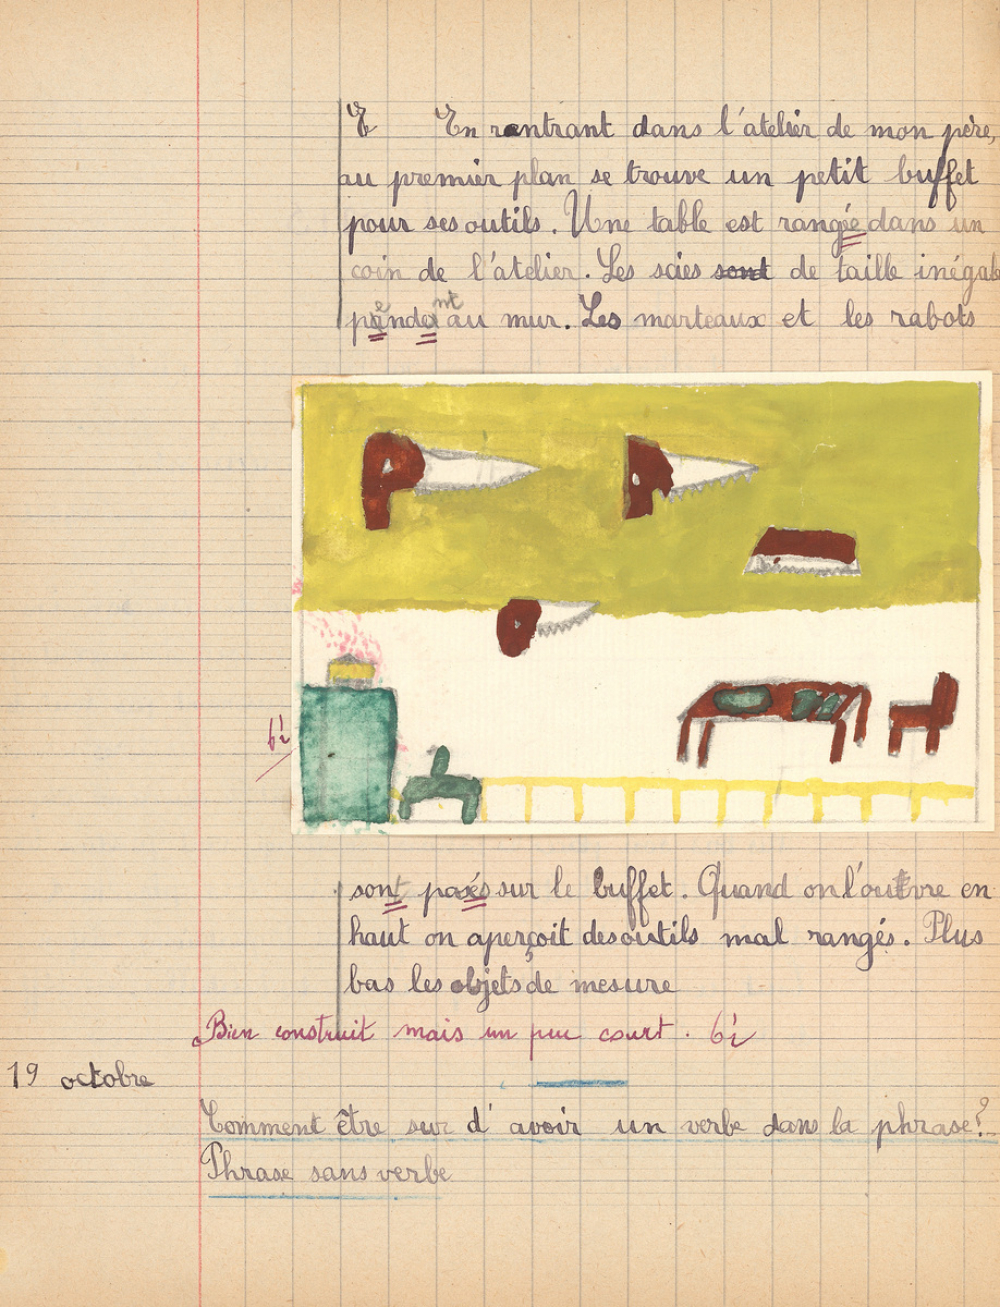 E En rentrant dans l'atelier de mon père,
au premier plan se trouve un petit buffet
pour ses outils. Une table est rangée dans un
coin de l'atelier. Les scies sont de taille inégale
e nt
pende au mur. Les marteaux et les rabots
sont posés sur le buffet. Quand on l'ouvre en
haut on aperçoit des outils mal rangés. Plus
bas les objets de mesure
Bien construit mais un peu court.
19 octobre
Comment être sur d'avoir un verbe dans la phrase?
Phrase sans verbe